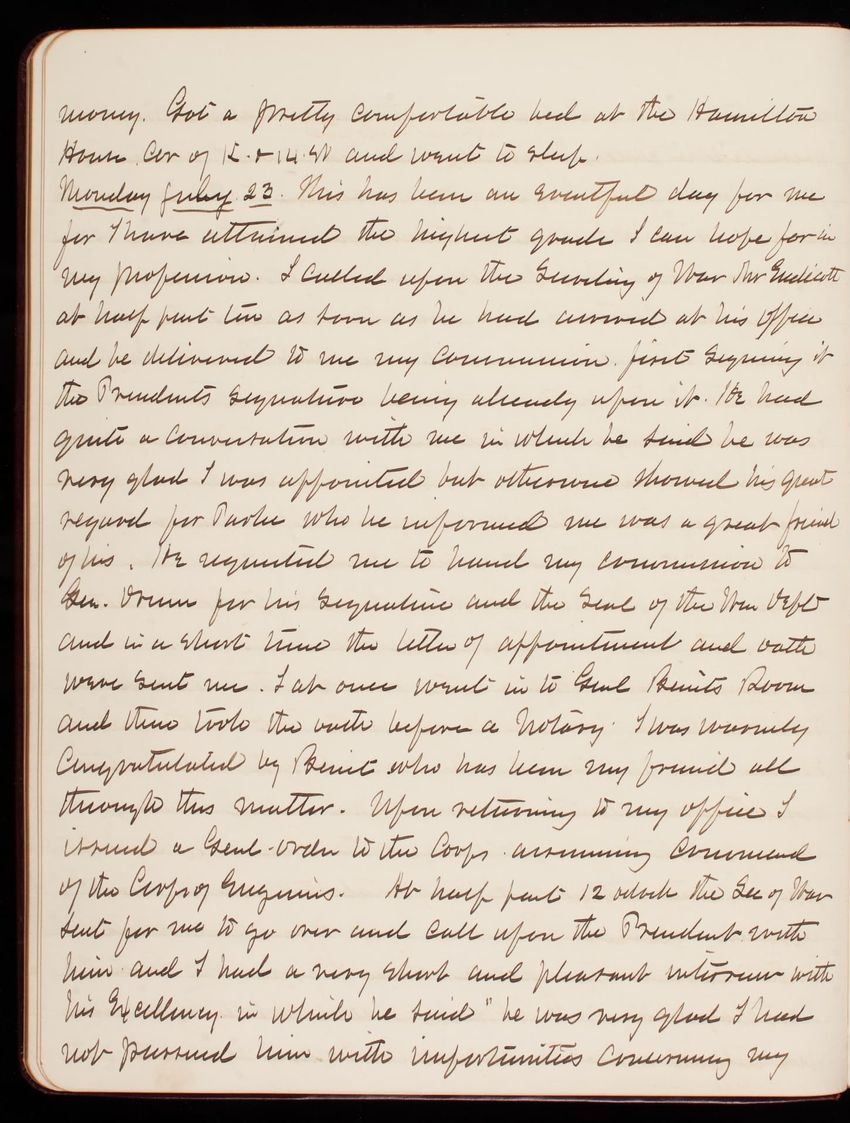 money. Got a pretty comfortable bed at the Hamilton
House Cor of K. & 14 St and went to sleep.
Monday July 23. This has been an eventful day for me
for I have attained the highest grade I can hope for in
my profession. I called upon the Secretary of War Mr Endicott
at half past ten as soon as he had arrived at his office
and he delivered to me my commission first signing it
the Presidents signature being already upon it. He had
quite a conversation with me in which he said he was
very glad I was appointed but otherwise showed his great
regard for Parke who he informed me was a great friend
of his. He requested me to hand my commission to
Gen. Drum for his signature and the Seal of the War Dept
and in a short time the letter of appointment and oath
were sent me. I at once went in to Genl Benéts Room
and there took the oath before a Notary. I was warmly
Congratulated by Benét who has been my friend all
through this matter. Upon returning to my office I
issued a Genl-order to the Corps assuming Command
of the Corps of Engineers. At half past 12 oclock the Sec of War
sent for me to go over and call upon the President with
him and I had a very short and pleasant interview with
his Excellency in which he said "he was very glad I had
not pursued him with importunities concerning my